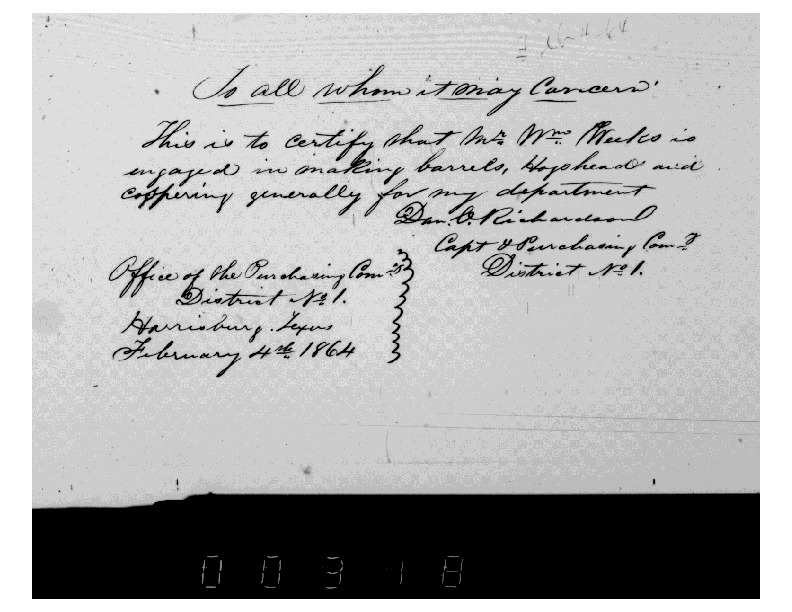 Feb 4. 64
To all whom it may Concern
This is to certify that Mr. Wm. Weeks is
engaged in making barrels, Hogshead and
coppering generally for my department
Dan. O. Richardson
Capt & Purchasing Comr
District No 1.
Office of the Purchasing Com's
District No 1.
Harrisburg. Texas
February 4th 1864
00318